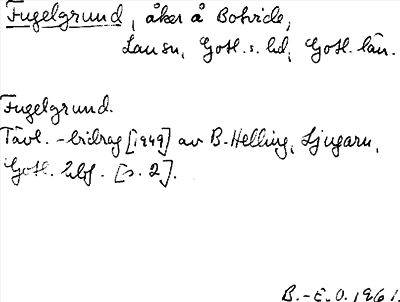 Fugelgrund, åker å Bohvide,
Lau sn, Gotl. s. hd, Gotl. län.
Fugelgrund.
Tävl.-bidrag [1949] av B. Helling, Ljugarn,
Gotl. hbf. [s. 2].
B.-E. O. 1961.